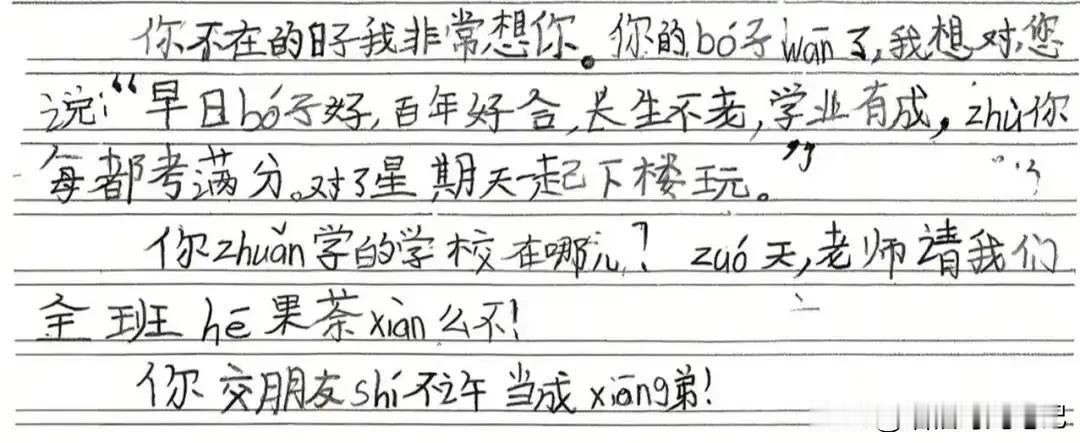 你不在的日子我非常想你。你的bó子wān了，我想对您
说：“早日bó子好，百年好合，长生不老，学业有成，zhù你
每都考满分。对了星期天一起下楼玩。”
你zhuǎn学的学校在哪儿？zuó天，老师请我们
全班hē果茶xiàn么不！
你交朋友shí不许当成xiōng弟！